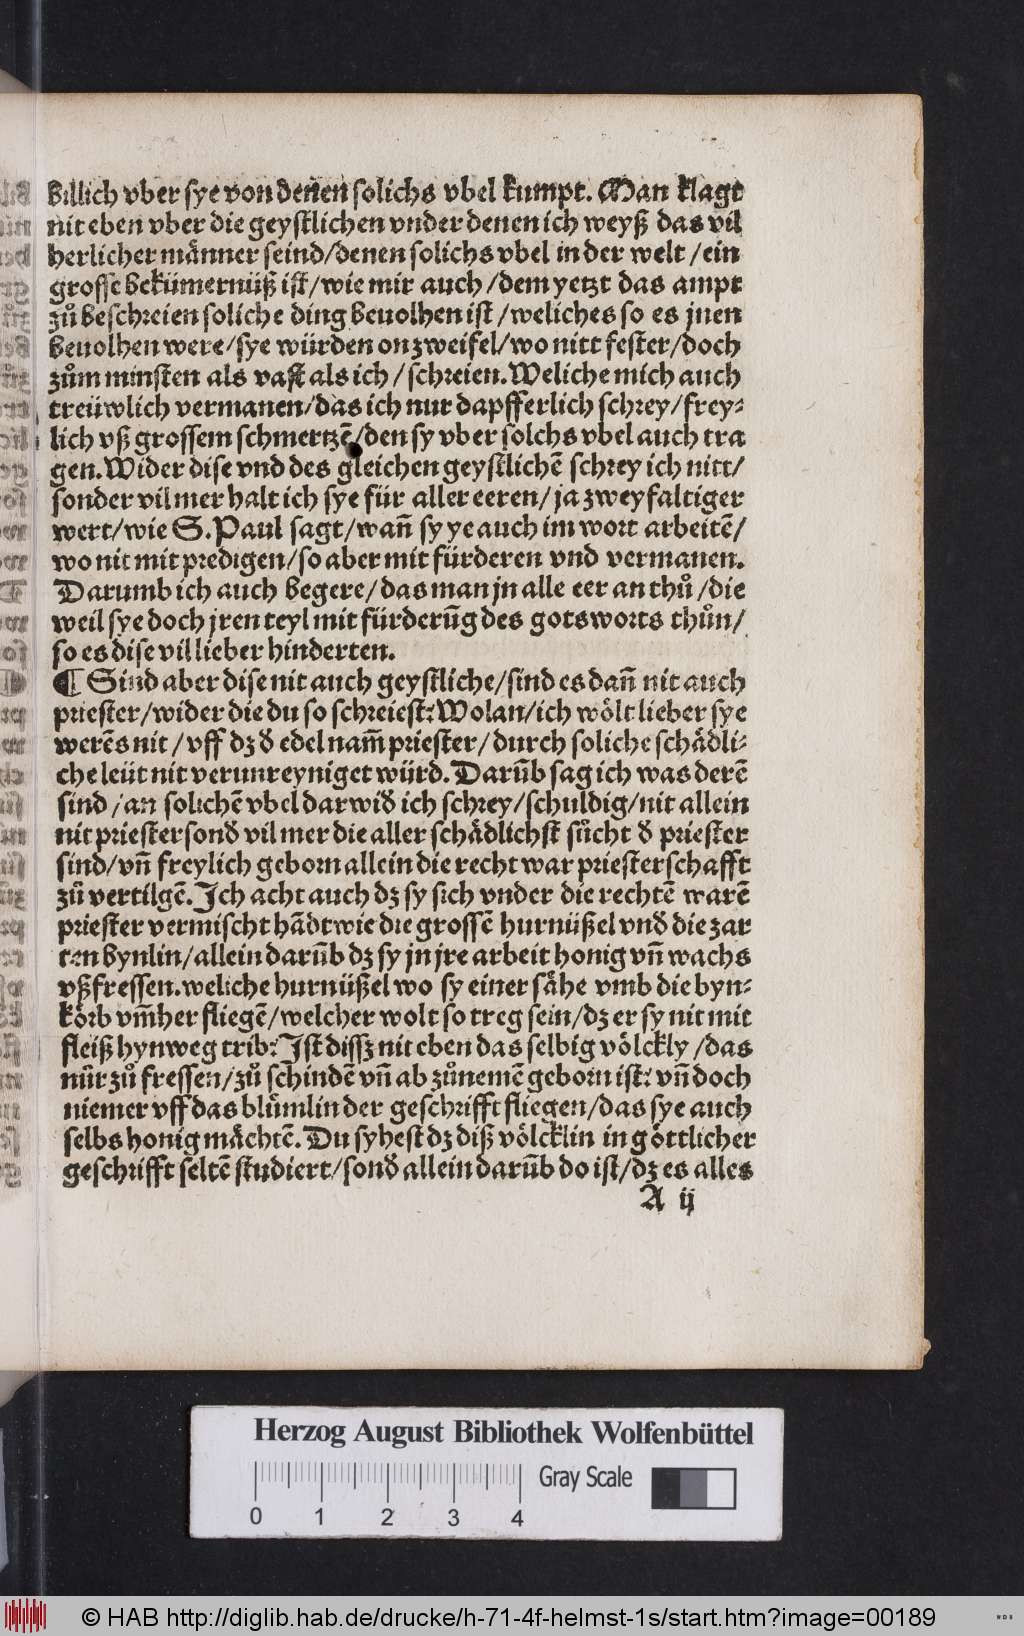 billich vber sye von denen solichs vbel kumpt. Man klagt
nit eben vber die geystlichen vnder denen ich weyß das vil
herlicher männer seind/denen solichs vbel in der welt/ein
grosse bekümernüß ist/wie mir auch/dem yetzt das ampt
zů beschreien soliche ding beuolhen ist/weliches so es jnen
beuolhen were/sye würden on zweifel/wo nitt fester/doch
zům minsten als vast als ich/schreien. Weliche mich auch
treüwlich vermanen/das ich nur dapfferlich schrey/frey-
lich vß grossem schmertzē/den sy vber solchs vbel auch tra
gen. Wider dise vnd des gleichen geystlichē schrey ich nitt/
sonder vil mer halt ich sye für aller eeren/ja zweyfaltiger
wert/wie S. Paul sagt/wañ sy ye auch im wort arbeitē/
wo nit mit predigen/so aber mit fürderen vnd vermanen.
Darumb ich auch begere/das man jn alle eer an thů/die
weil sye doch jren teyl mit fürderūg des gotsworts thůn/
so es dise vil lieber hinderten.
¶ Sind aber dise nit auch geystliche/sind es dañ nit auch
priester/wider die du so schreiest: Wolan/ich wölt lieber sye
werēs nit/vff dz ď edel nam̄ priester/durch soliche schädli-
che leüt nit verunreyniget würd. Darūb sag ich was derē
sind/an solichē vbel darwiď ich schrey/schuldig/nit allein
nit priester sonď vil mer die aller schädlichst sücht ď priester
sind/vñ freylich geborn allein die recht war priesterschafft
zů vertilgē. Ich acht auch dz sy sich vnder die rechtē warē
priester vermischt hādt wie die grossē hurnüßel vnď die zar
ten bynlin/allein darūb dz sy jn jre arbeit honig vñ wachs
vßfressen. weliche hurnüßel wo sy einer sähe vmb die byn-
körb vm̄her fliegē/welcher wolt so treg sein/dz er sy nit mit
fleiß hynweg trib: Ist dissz nit eben das selbig völckly/das
nür zů fressen/zů schindē vñ ab zůnemē geborn ist: vñ doch
niemer vff das blümlin der geschrifft fliegen/das sye auch
selbs honig mächtē. Du syhest dz diß völcklin in göttlicher
geschrifft seltē studiert/sonď allein darūb do ist/dz es alles
A ij
Herzog August Bibliothek Wolfenbüttel
Gray Scale
0 1 2 3 4
© HAB http://diglib.hab.de/drucke/h-71-4f-helmst-1s/start.htm?image=00189